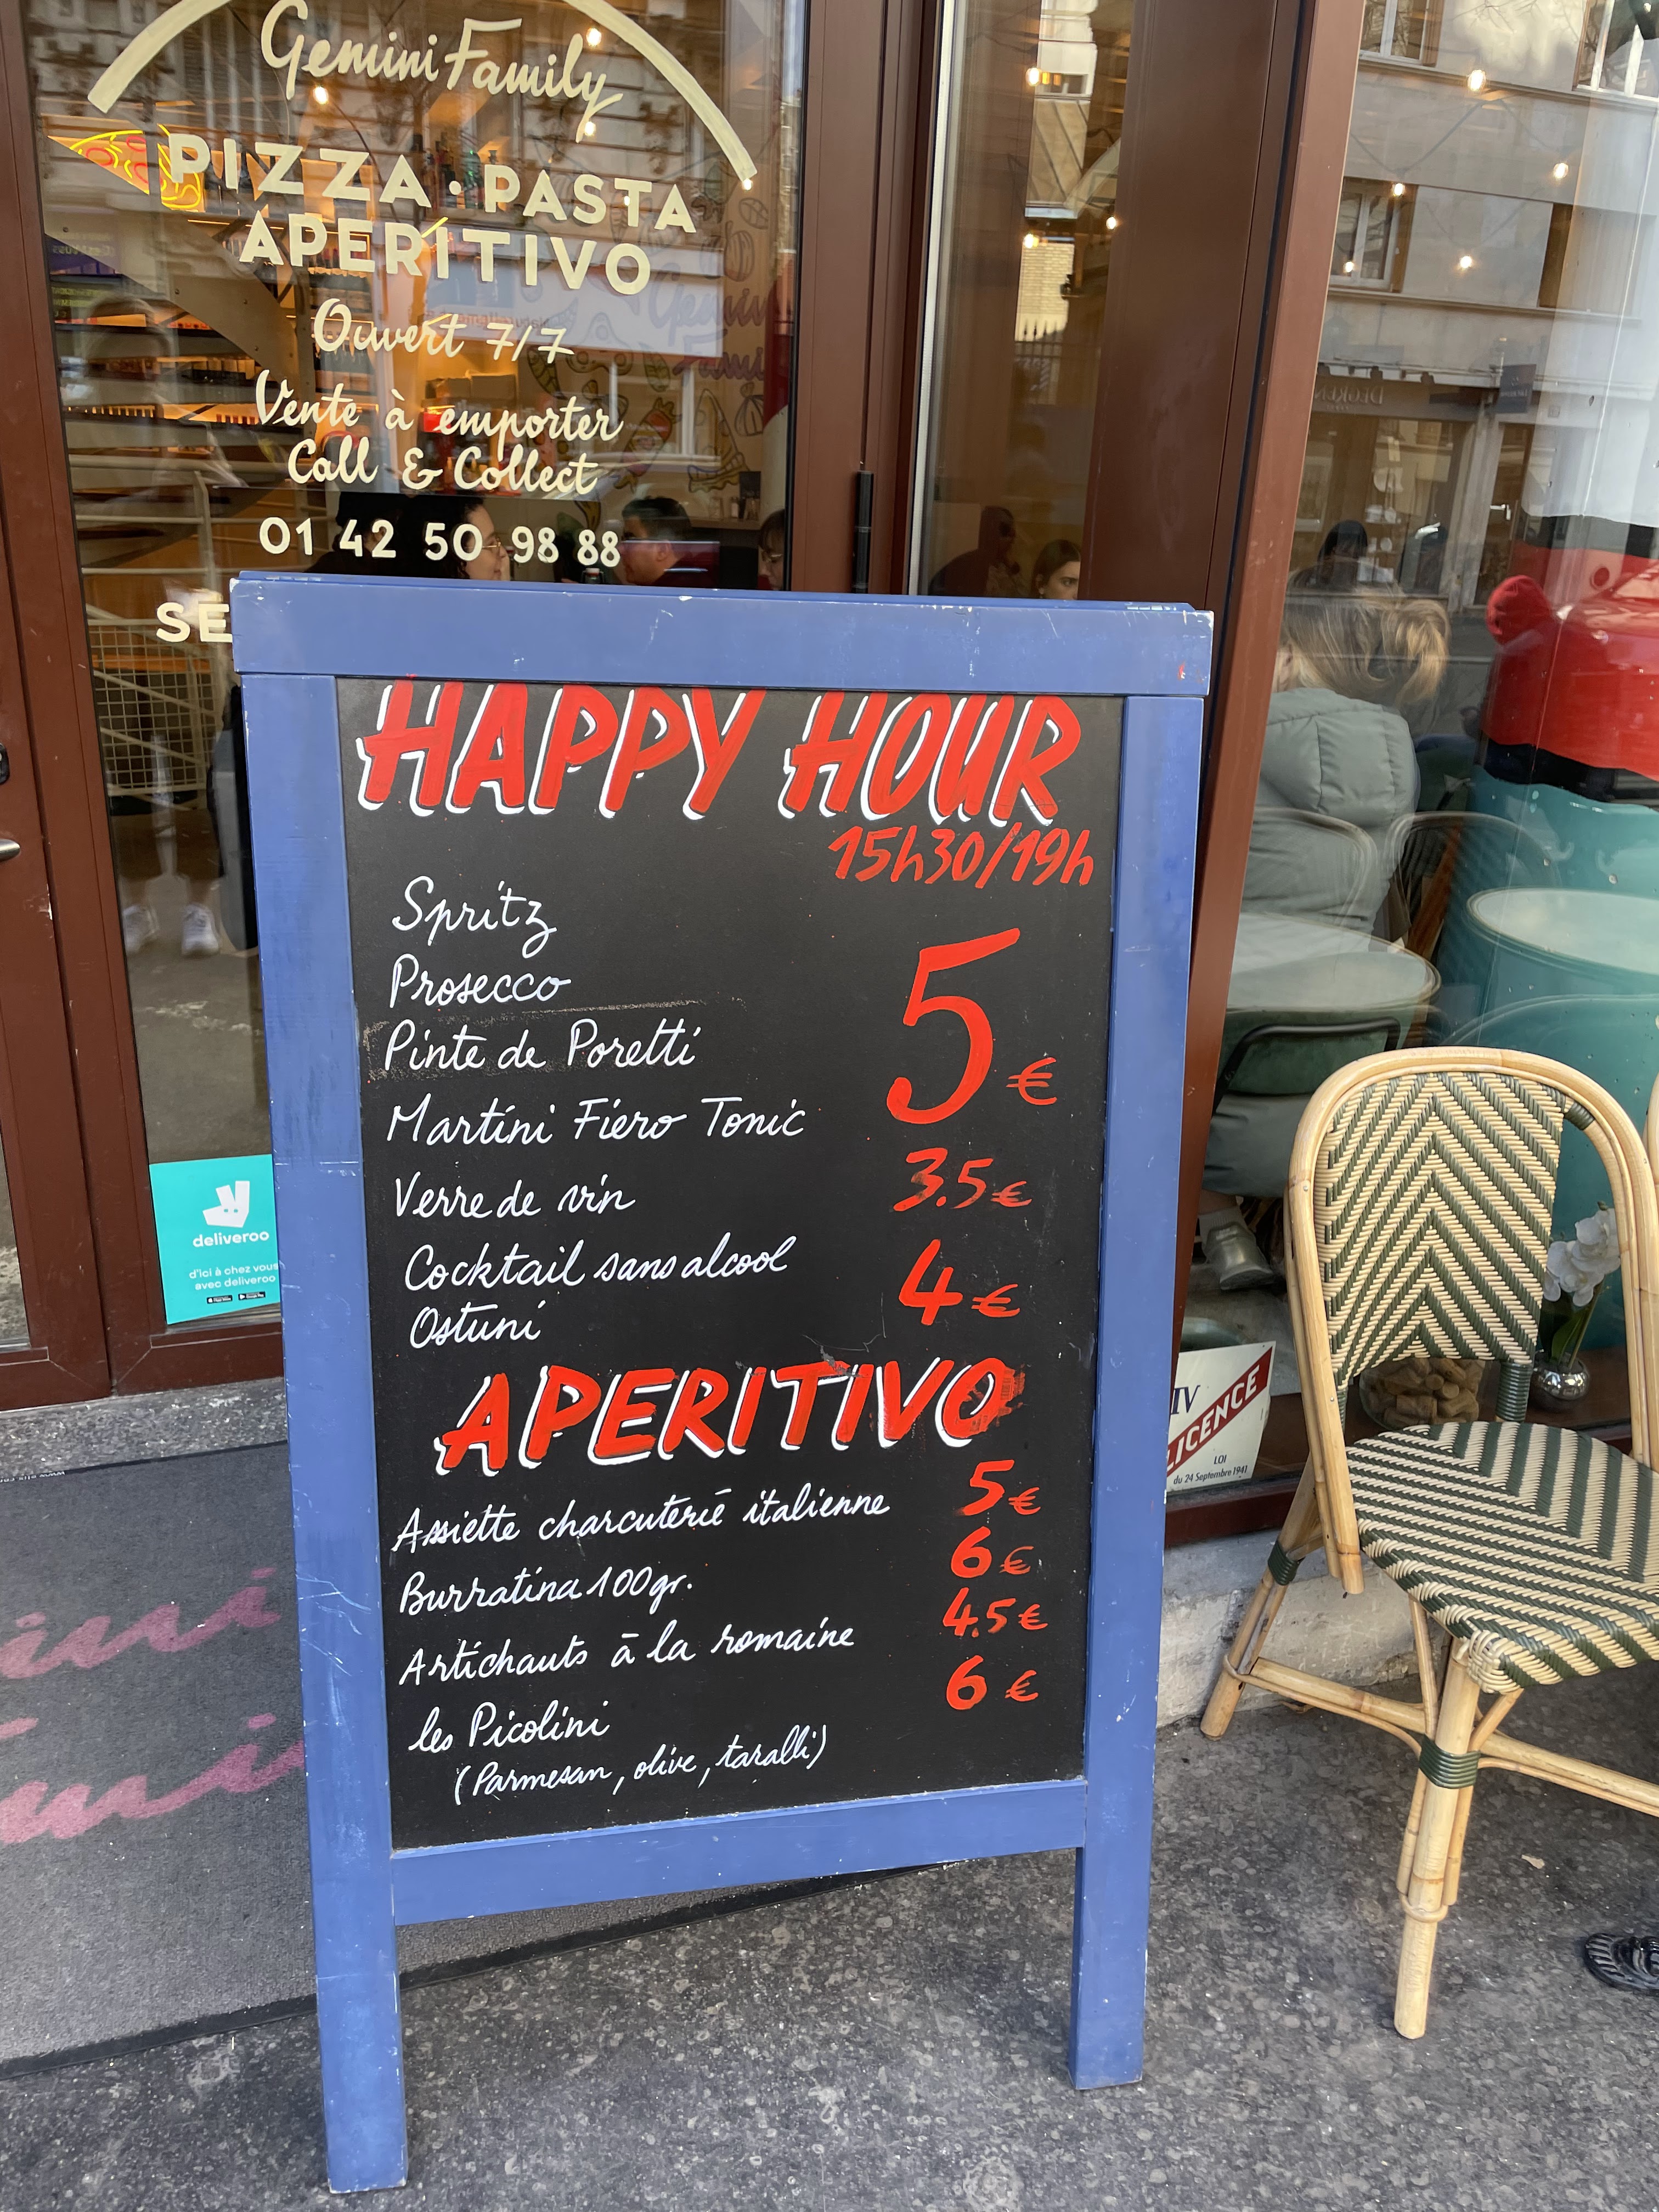 Gemini Family
PIZZA · PASTA
APERITIVO
Ouvert 7/7
Vente à emporter
Call & Collect
01 42 50 98 88
SE
HAPPY HOUR
15h30/19h
Spritz
Prosecco
Pinte de Poretti
Martini Fiero Tonic
5€
Verre de vin 3.5€
Cocktail sans alcool
Ostuni
4€
APERITIVO
Assiette charcuterie italienne 5€
Burratina 100gr. 6€
Artichauts à la romaine 4.5€
les Picolini 6€
(Parmesan, olive, taralli)
deliveroo
d'ici à chez vous
avec deliveroo
IV
LICENCE
LOI
du 24 Septembre 1941